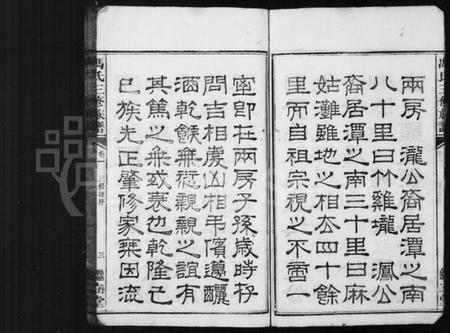 兩房　瀧公裔居潭之南
八十里曰竹雞壠　瀛公
裔居潭之南三十里曰麻
姑灘雖地之相去四十餘
里而自祖宗視之不啻一
室即在兩房子孫歲時存
問吉相慶凶相弔儐籩釃
酒乾餱無愆親親之誼有
其篤之無或㐮也乾隆己
巳族先正肇修家乗因流
馮氏三修族譜
三修譜序
三